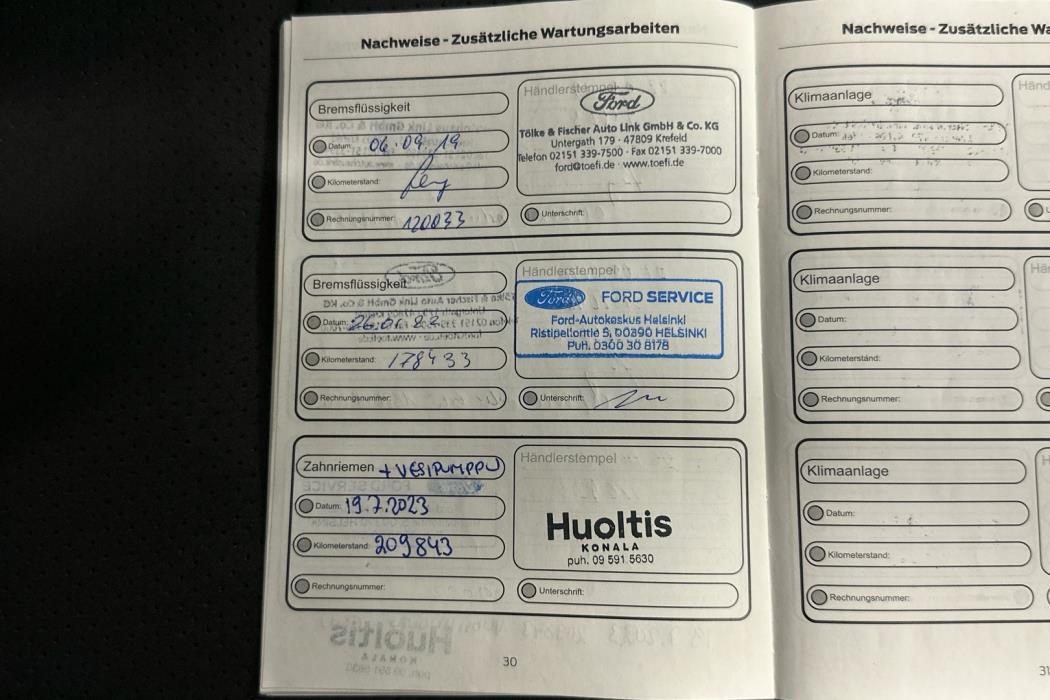 Nachweise - Zusätzliche Wartungsarbeiten
Bremsflüssigkeit
Datum: 06.09.19
Kilometerstand:
Rechnungsnummer: 120033
Händlerstempel
Ford
Tölke & Fischer Auto Link GmbH & Co. KG
Untergath 179 · 47809 Krefeld
Telefon 02151 339-7500 · Fax 02151 339-7000
ford@toefi.de · www.toefi.de
Unterschrift:
Bremsflüssigkeit
Datum:
Kilometerstand: 178433
Rechnungsnummer:
Händlerstempel
Ford FORD SERVICE
Ford-Autokeskus Helsinki
Ristipellontie 5, 00390 HELSINKI
Puh. 0300 30 8178
Unterschrift:
Zahnriemen + VESIPUMPPU
Datum: 19.7.2023
Kilometerstand: 209843
Rechnungsnummer:
Händlerstempel
Huoltis
KONALA
puh. 09 591 5630
Unterschrift:
30
Nachweise - Zusätzliche Wa
Klimaanlage
Datum:
Kilometerstand:
Rechnungsnummer:
Händ
Klimaanlage
Datum:
Kilometerstand:
Rechnungsnummer:
Hä
Klimaanlage
Datum:
Kilometerstand:
Rechnungsnummer:
31